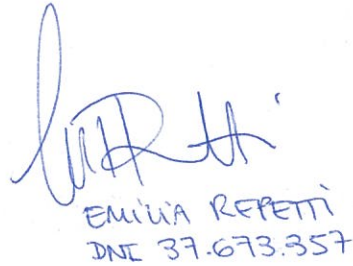 EMILIA REPETTI
DNI 37.673.357